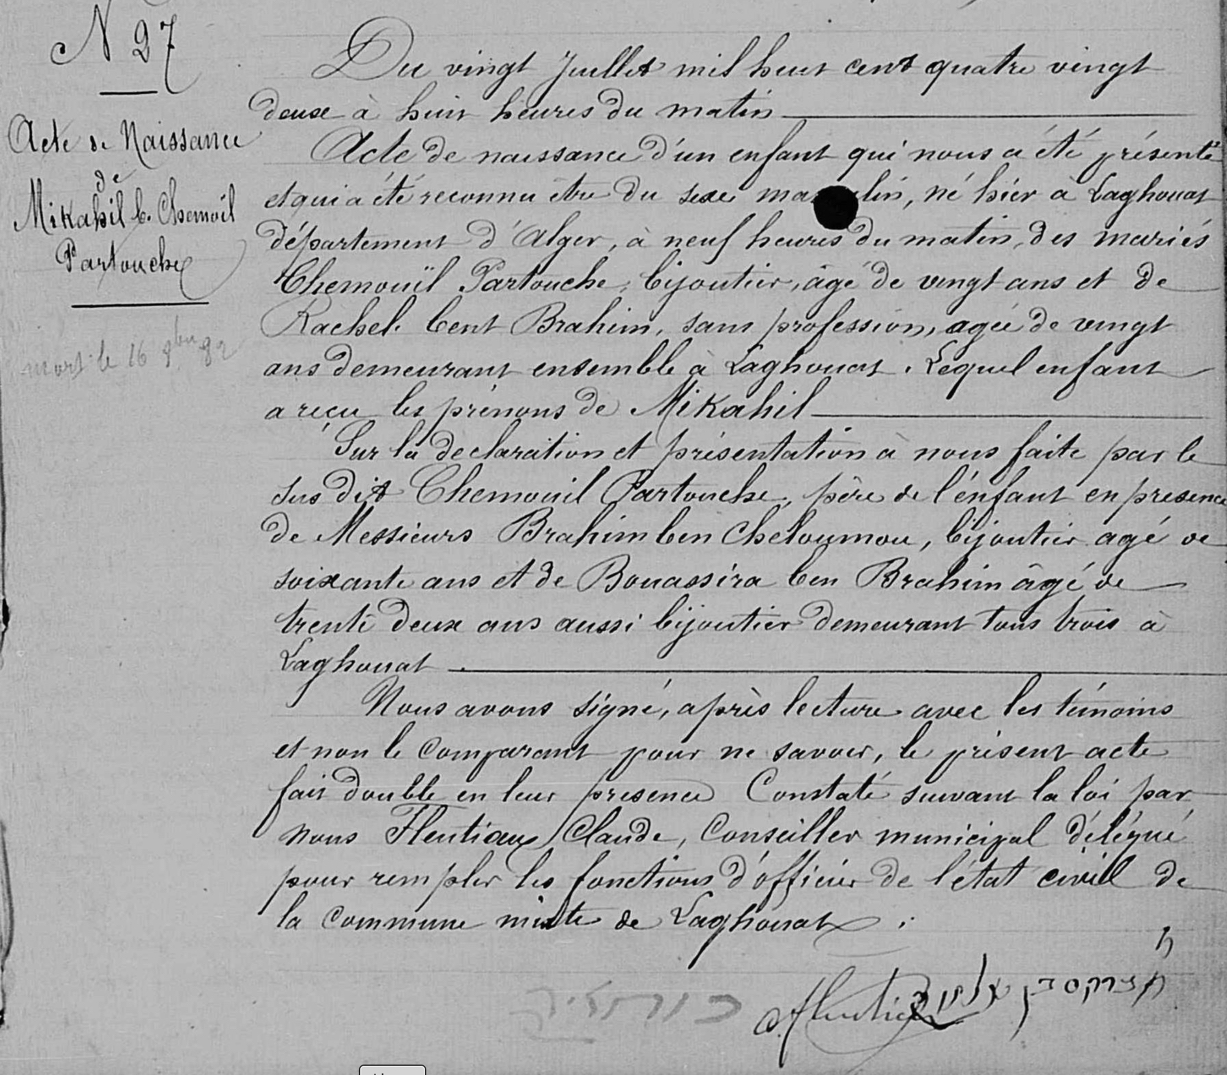 N 27
Acte de Naissance
de
Mikahil b. Chemoil
Partouche
mort le 16 9bre 82
Du vingt Juillet mil huit cent quatre vingt
deux à huit heures du matin
Acte de naissance d'un enfant qui nous a été présenté
et qui a été reconnu être du sexe ma lin, né hier à Laghouat
département d'Alger, à neuf heures du matin, des mariés
Chemouïl Partouche, bijoutier, âgé de vingt ans et de
Rachel bent Brahim, sans profession, agée de vingt
ans demeurant ensemble à Laghouat. Lequel enfant
a reçu les prénons de Mikahil
Sur la declaration et présentation à nous faite par le
sus dit Chemouil Partouche, père de l'énfant en presence
de Messieurs Brahim ben Cheloumou, bijoutier agé de
soixante ans et de Bouassira ben Brahim âgé de
trente deux ans aussi bijoutier demeurant tous trois à
Laghouat
Nous avons signé, après lecture avec les témoins
et non le comparant pour ne savoir, le présent acte
fait double en leur presence Constaté suivant la loi par
nous Flentiaux Claude, Conseiller municipal délégué
pour remplir les fonctions d'officier de l'état civil de
la commune mixte de Laghouat